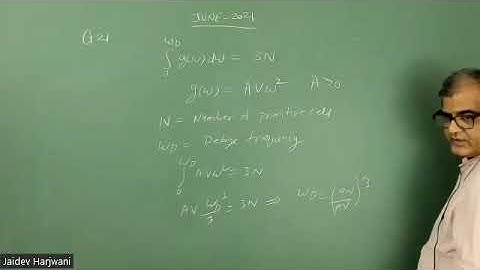 JUNE-2021
Q21
∫₃^ω_D g(ω)dω = 3N
g(ω) = AVω² A>0
N = Number of primitive cells
ω_D = Debye frequency
∫₀^ω_D AVω² = 3N
AV ω_D³/3 = 3N ⇒ ω_D = (9N/AV)^1/3
Jaidev Harjwani